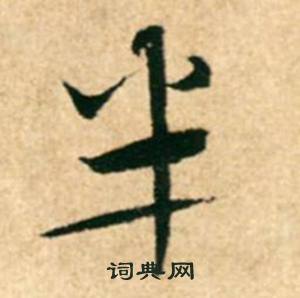 半
词典网